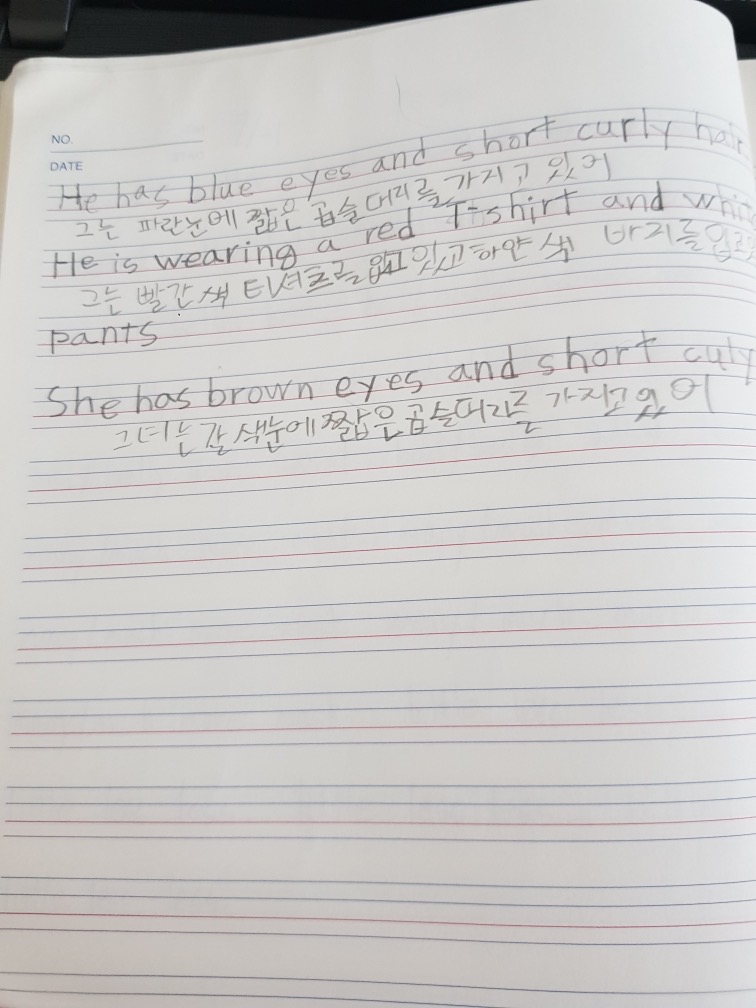 NO.
DATE
He has blue eyes and short curly hair
그는 파란눈에 짧은 곱슬머리를 가지고 있어
He is wearing a red T-shirt and whit
그는 빨간색 티셔츠를 입고 있고 하얀 색 바지를 입
pants
She has brown eyes and short culy
그녀는 갈색눈에 짧은 곱슬머리를 가지고 있어